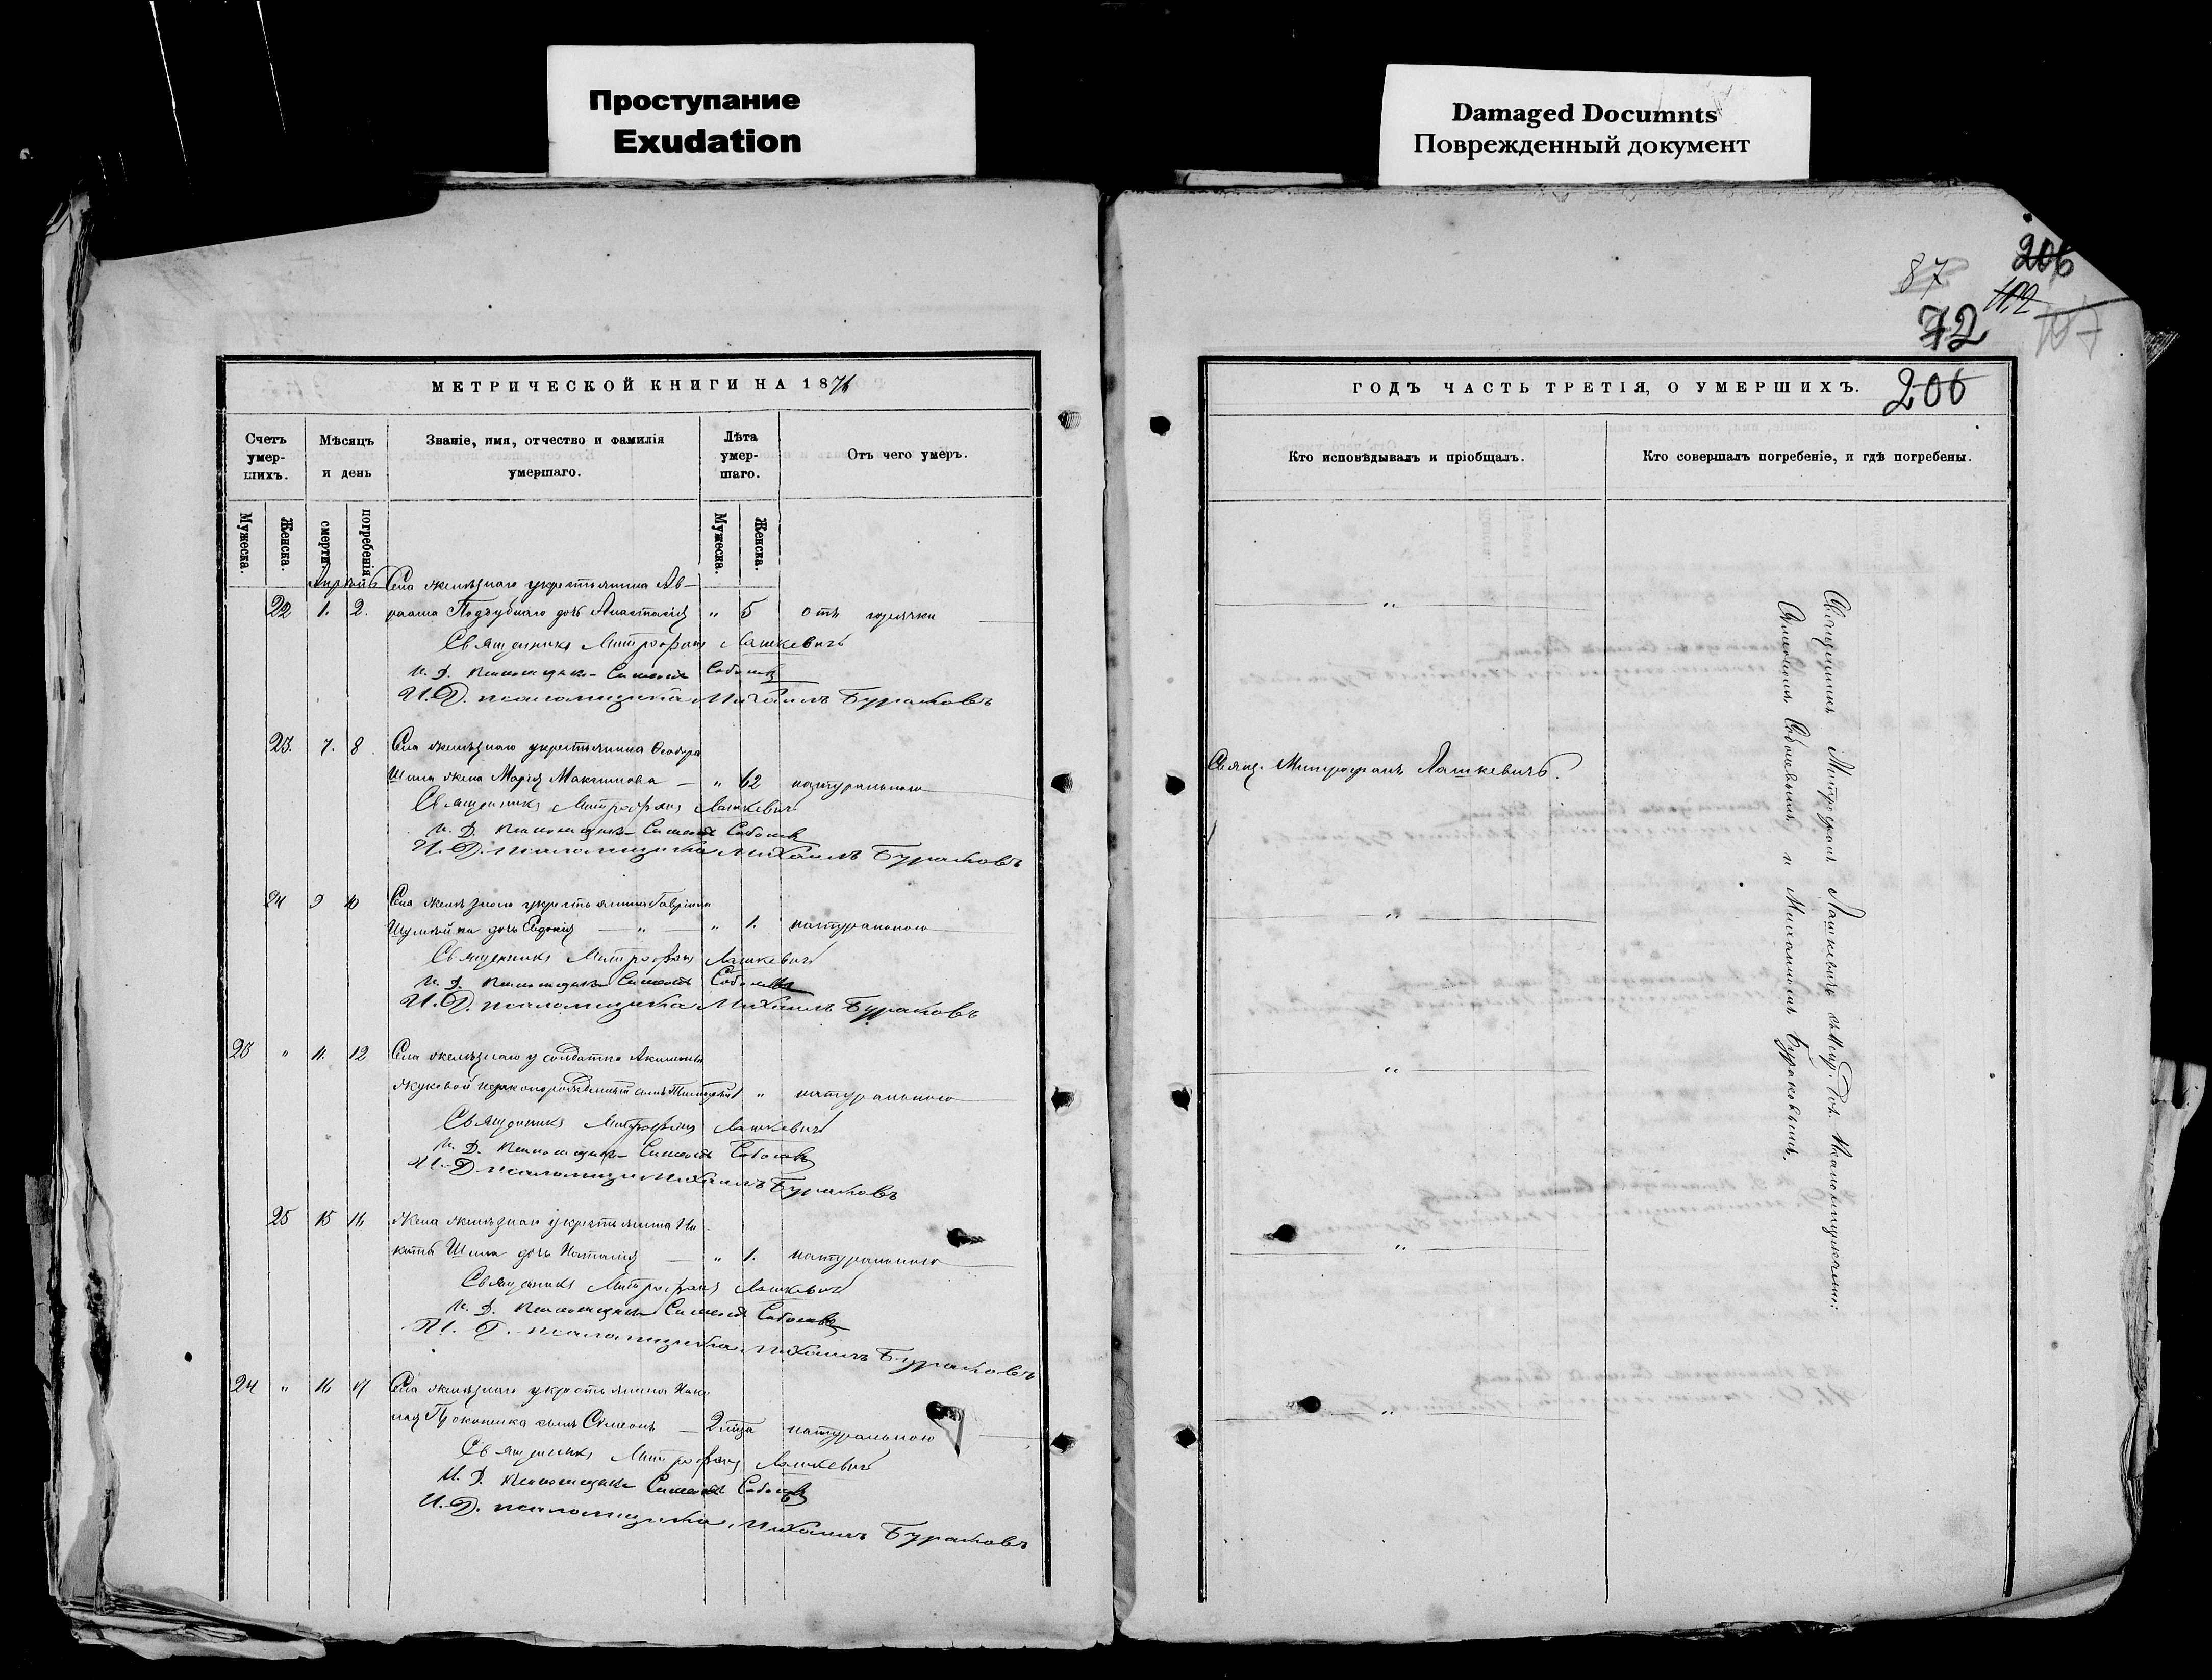 Проступание
Exudation
Damaged Documnts
Поврежденный документ
87
206
112
72
107
МЕТРИЧЕСКОЙ КНИГИ НА 1876
Счетъ умер- шихъ.
Мѣсяцъ и день
Званіе, имя, отчество и фамилія умершаго.
Лѣта умер- шаго.
Отъ чего умеръ.
Мужеска.
Женска.
смерти
погребенія
Мужеска.
Женска.
Апрѣль Села желѣзнаго у крестьянина Ав-
22 1. 2. раама Поддубнаго дочь Анастасія „ 5 отъ горячки
Священникъ Митрофанъ Лашкевичъ
И. Д. Псаломщика Симеонъ Соболевъ
И. Д. псаломщика Михаилъ Бураковъ
23. 7. 8 Села желѣзнаго у крестьянина Ѳеодора
Шила жена Марія Максимова — „ 62 натуральною
Священникъ Митрофанъ Лашкевичъ
И. Д. Псаломщика Симеонъ Соболевъ
И. Д. псаломщика Михаилъ Бураковъ
24 9 10 Села желѣзнаго у крестьянина Гавріила
дочь Евдокія — „ — „ 1. натуральною
Священникъ Митрофанъ Лашкевичъ
И. Д. Псаломщика Симеонъ Соболевъ
И. Д. псаломщика Михаилъ Бураковъ
23 „ 11. 12 Села желѣзнаго у солдатки Акилины
Жуковой незаконорожденный сынъ Тимофей 1 „ натуральною
Священникъ Митрофанъ Лашкевичъ
И. Д. Псаломщика Симеонъ Соболевъ
И. Д. псаломщи Михаилъ Бураковъ
25 15 16 желѣзнаго у крестьянина Ни-
киты Шила дочь Наталія — „ 1. натуральною
Священникъ Митрофанъ Лашкевичъ
И. Д. Псаломщика Симеонъ Соболевъ
И. Д. псаломщика Михаилъ Бураковъ
24 „ 16 17 Села желѣзнаго у крестьянина Нико
лая Прокопенка сынъ Симеонъ — 2 натуральною
Священникъ Митрофанъ Лашкевичъ
И. Д. Псаломщика Симеонъ Соболевъ
И. Д. псаломщика Михаилъ Бураковъ
ГОДЪ ЧАСТЬ ТРЕТІЯ, О УМЕРШИХЪ. 206
Кто исповѣдывалъ и пріобщалъ.
Кто совершалъ погребеніе, и гдѣ погребены.
„
Свящ. Митрофанъ Лашкевичъ.
„
„
„
„
Священникъ Митрофанъ Лашкевичъ съ Псаломщиками:
Симеономъ Соболевымъ и Михаиломъ Бураковымъ.